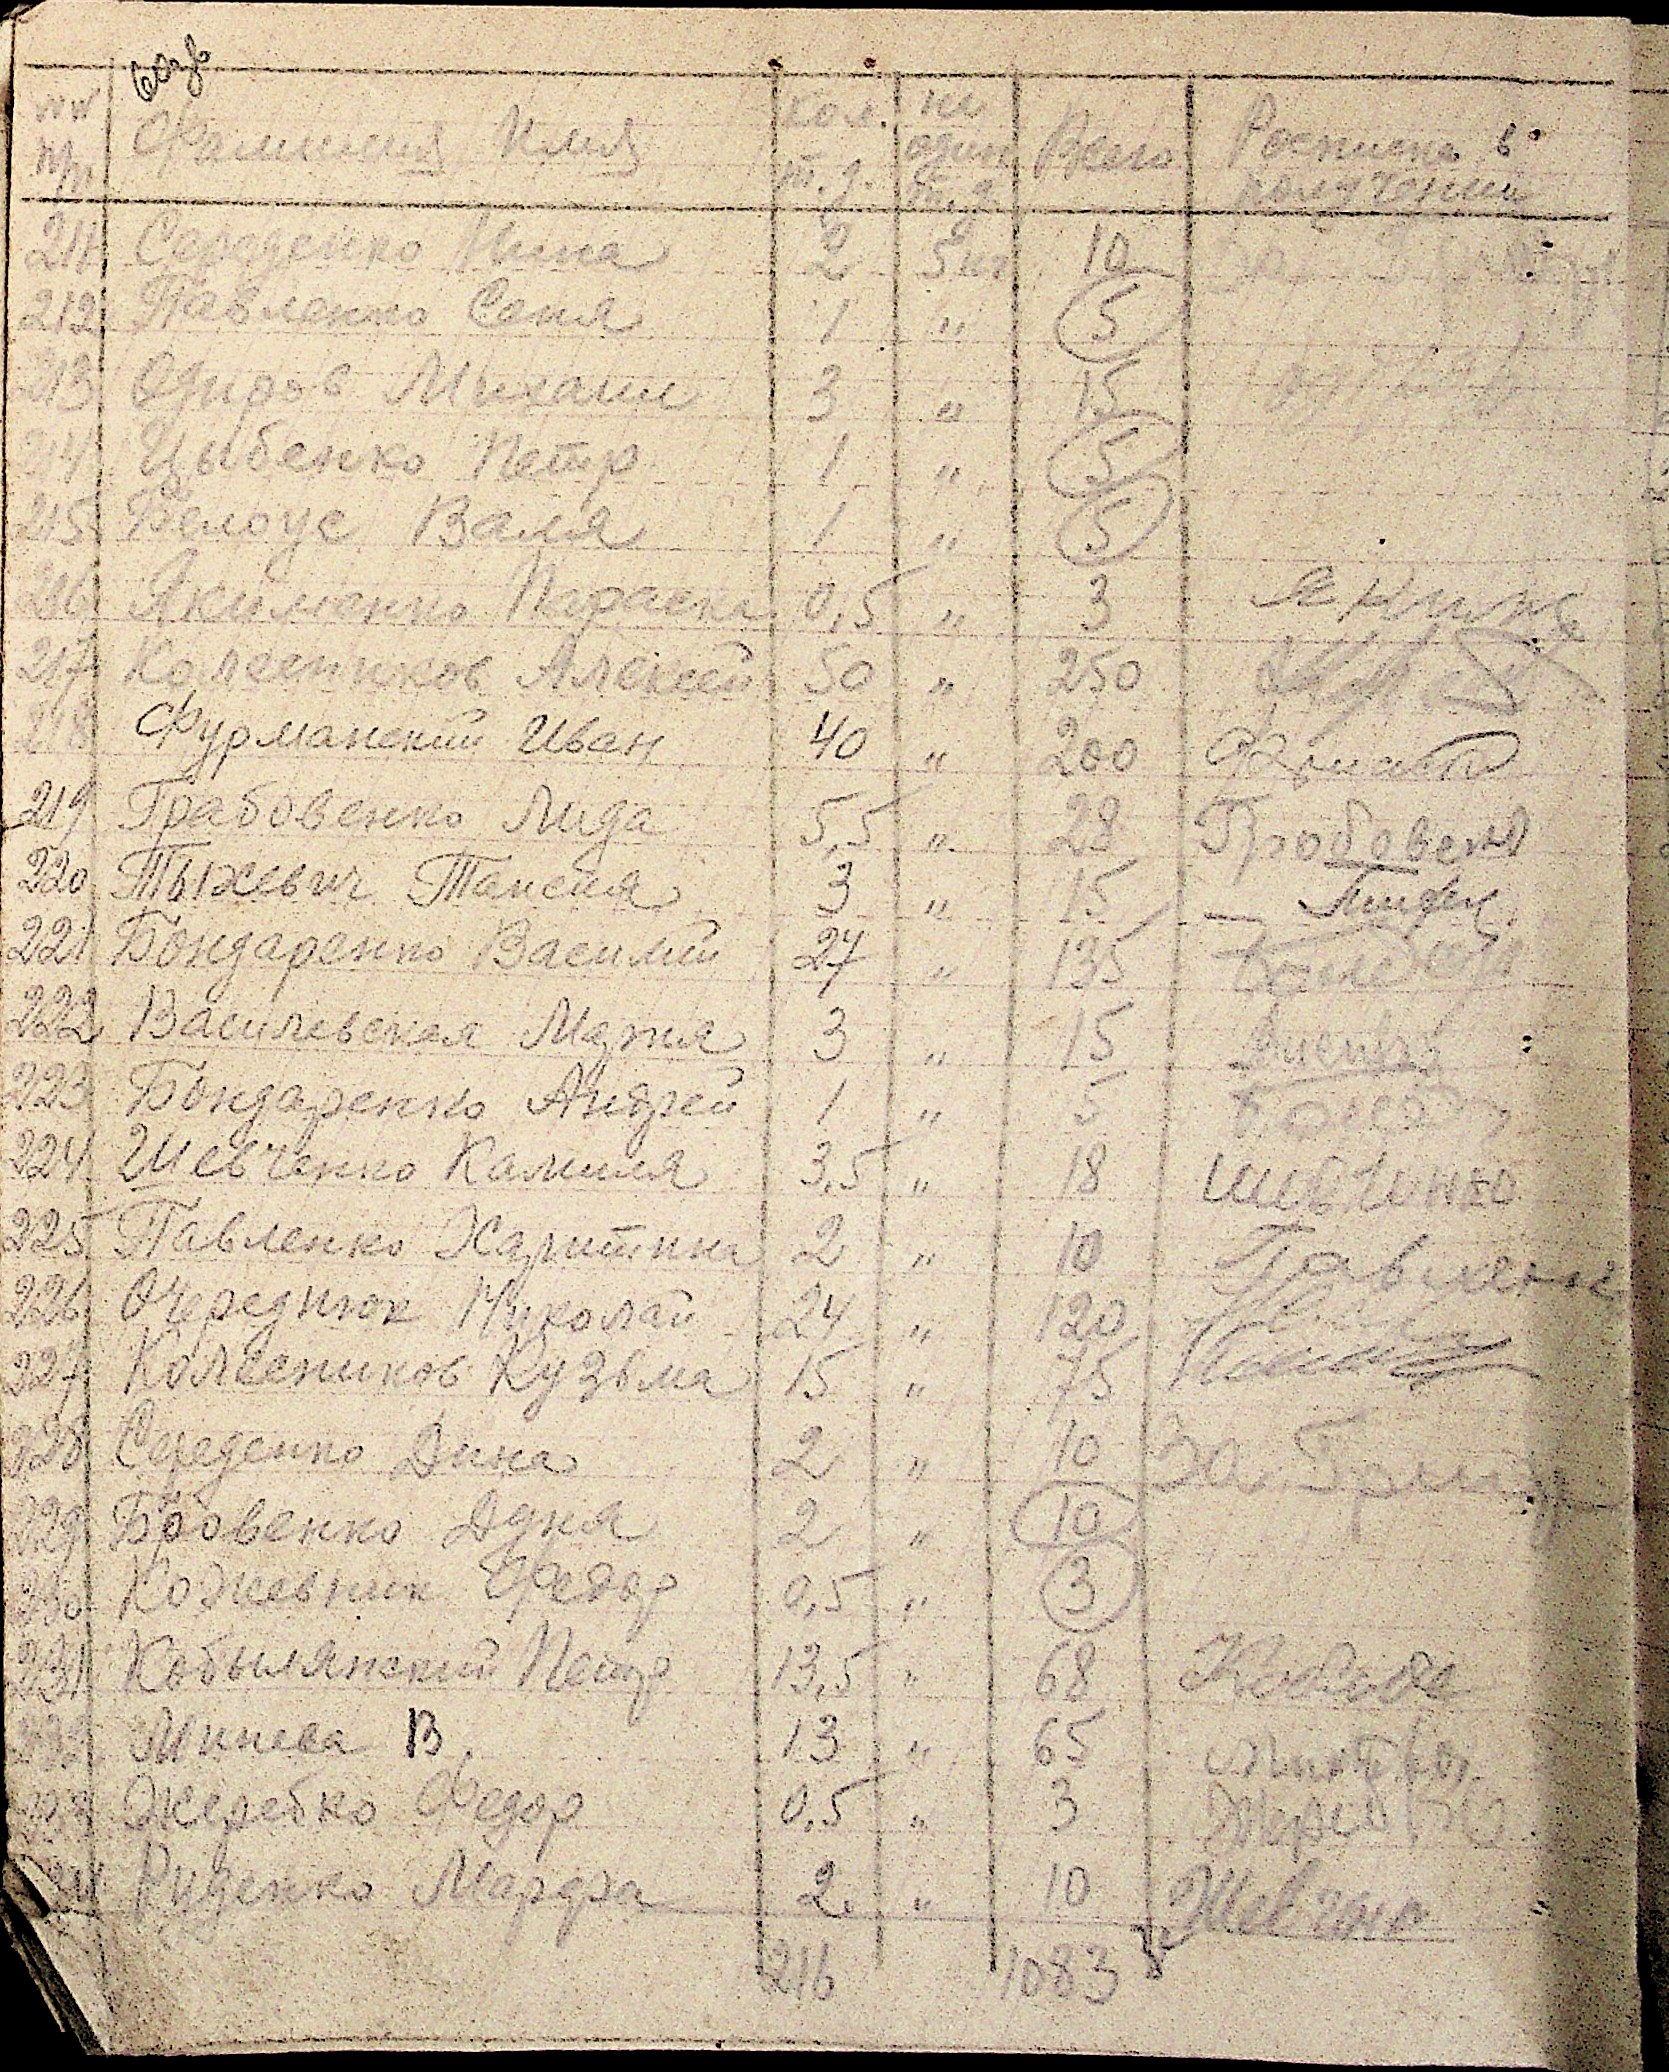 60зв
№№ п/п Фамилия Имя кол. т.д. на один т.д. Всего Росписка в получении
211 Середенко Нина 2 5 кг 10 За
212 Павленко Сеня 1 " 5
213 Озиров Михаил 3 " 15
214 Цыбенко Петр 1 " 5
215 Белоус Валя 1 " 5
216 Якименко Параска 0,5 " 3 Якиме
217 Колесников Алексей 50 " 250
218 Фурманский Иван 40 " 200
219 Грабовенко Лида 5,5 " 28 Гробовен
220 Тыхевич Таисия 3 " 15
221 Бондаренко Василий 27 " 135
222 Василевская Мария 3 " 15
223 Бондаренко Андрей 1 " 5
224 Шевченко Камиля 3,5 " 18 Шивчинко
225 Павленко Харитина 2 " 10 Павленк
226 Очереднюк Николай 24 " 120
227 Колесников Кузьма 15 " 75
228 Середенко Дина 2 " 10 За
229 Бровенко Дуня 2 " 10
230 Кожевник Федор 0,5 " 3
231 Кобылянский Петр 13,5 " 68
232 Минева В 13 " 65
233 Жеребко Федор 0,5 " 3
234 Руденко Марфа 2 " 10 Шевченко
216 1083